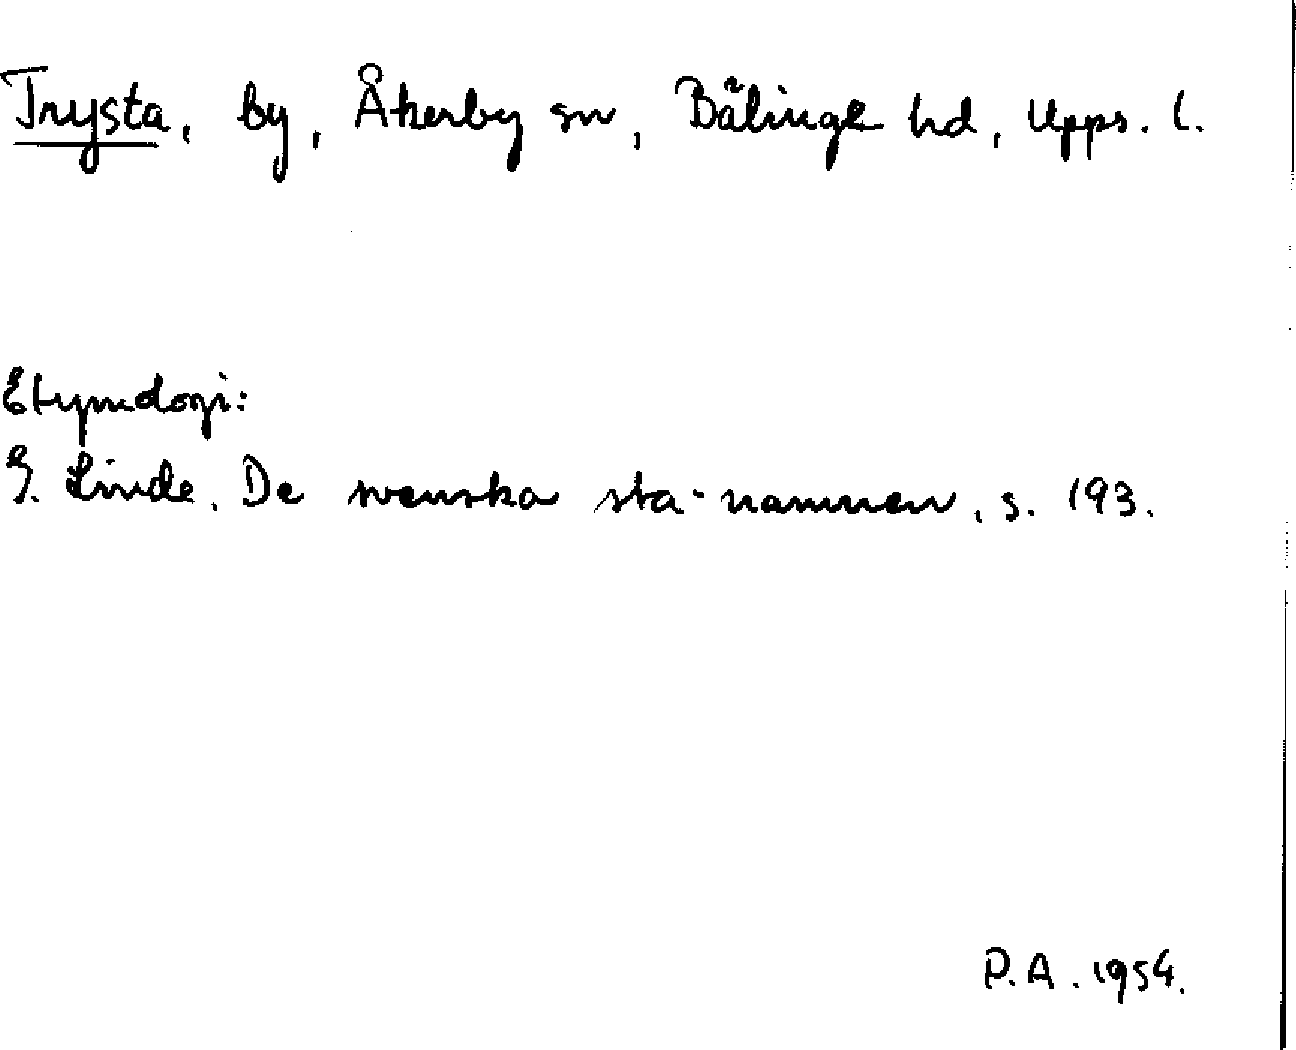 Trysta, by, Åkerby sn, Bälinge hd, Upps. l.
Etymologi:
G. Linde. De svenska sta-namnen, s. 193.
P.A. 1954.